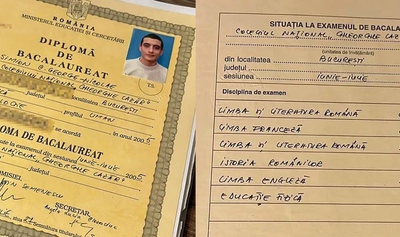 ROMÂNIA
MINISTERUL EDUCAȚIEI ȘI CERCETĂRII
DIPLOMĂ
DE
BACALAUREAT
GEORGE-NICOLAE
NAȚIONAL „GHEORGHE LAZĂR”
localitatea BUCUREȘTI
județul
profilul UMAN
în anul 2005
DIPLOMA DE BACALAUREAT
examenul din sesiunea IUNIE-IULIE 2005
NAȚIONAL „GHEORGHE LAZĂR”
SECRETAR
SITUAȚIA LA EXAMENUL DE BACALA
COLEGIUL NAȚIONAL „GHEORGHE LAZĂR
(unitatea de învățământ)
din localitatea BUCUREȘTI
județul
sesiunea IUNIE-IULIE
Disciplina de examen
LIMBA ȘI LITERATURA ROMÂNĂ
LIMBA FRANCEZĂ
LIMBA ȘI LITERATURA ROMÂNĂ
ISTORIA ROMÂNILOR
LIMBA ENGLEZĂ
EDUCAȚIE FIZICĂ